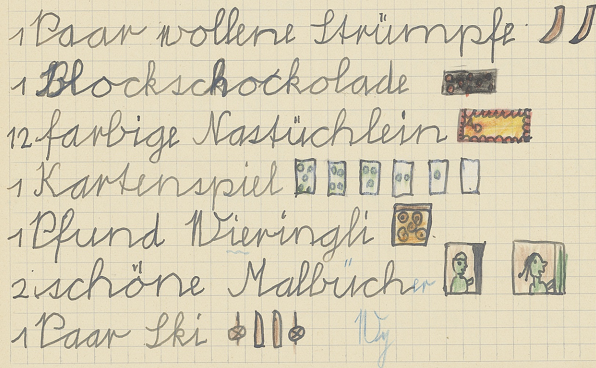 1 Paar wollene Strümpfe
1 Blockschockolade
12 farbige Nastüchlein
1 Kartenspiel
1 Pfund Wieringli
2 schöne Malbücher
1 Paar Ski